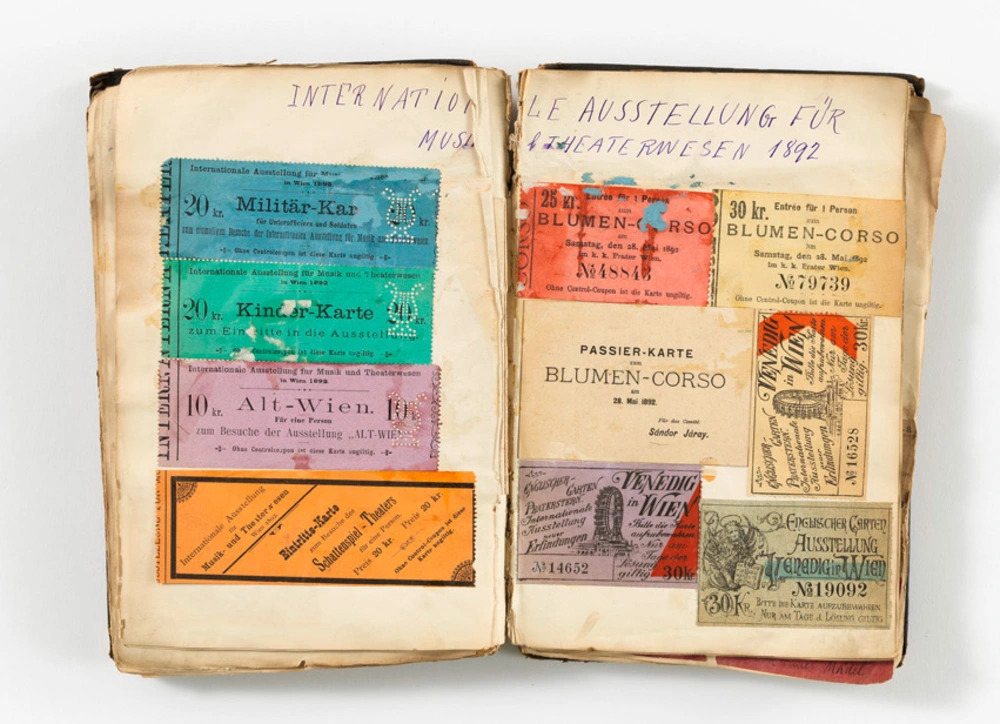 INTERNATIO LE AUSSTELLUNG FÜR
MUSI THEATERWESEN 1892
Internationale Ausstellung für
in Wien 1892.
20 kr. Militär-Kar kr.
für Unterofficiere und Soldaten
zum einmaligen Besuche der Internationalen Ausstellung für Musik
Ohne Controlcoupon ist diese Karte ungiltig.
Internationale Ausstellung für Musik und Theaterwesen
in Wien 1892
20 kr. Kinder-Karte 20 kr.
zum Eintritte in die Ausstellung
Controlcoupon ist diese Karte ungiltig.
Internationale Ausstellung für Musik und Theaterwesen
in Wien 1892.
10 kr. Alt-Wien. 10
Für eine Person
zum Besuche der Ausstellung „ALT-WIEN
Ohne Controlcoupon ist diese Karte ungiltig.
Internationale Ausstellung
für
Musik- und Theaterwesen
Wien 1892.
Eintritts-Karte
zum Besuche des
Schattenspiel-Theaters
für eine Person.
Preis 20 kr. Preis 20 kr.
Ohne Control-Coupon ist diese
Karte ungiltig.
25 kr. Entrée für 1 Person
zum
BLUMEN-CORSO
am
Samstag, den 28. Mai 1892
im k. k. Prater Wien.
№48843
Ohne Control-Coupon ist die Karte ungiltig.
30 kr. Entrée für 1 Person
zum
BLUMEN-CORSO
am
Samstag, den 28. Mai 1892
im k. k. Prater Wien.
№79739
Ohne Control-Coupon ist die Karte ungiltig.
PASSIER-KARTE
zum
BLUMEN-CORSO
am
28. Mai 1892.
Für das Comité:
Sándor Járay.
VENEDIG
in WIEN
Bitte die Karte
aufzubewahren
Nur am
Tage der
Lösung
giltig 30kr.
ENGLISCHER
GARTEN
PRATERSTERN.
Internationale
Ausstellung
neuer
Erfindungen
№16528
ENGLISCHER
GARTEN
PRATERSTERN.
Internationale
Ausstellung
neuer
Erfindungen
№14652
VENEDIG
in WIEN
Bitte die Karte
aufzubewahren
Nur am
Tage der
Lösung
giltig 30kr
ENGLISCHER GARTEN
AUSSTELLUNG
VENEDIG in WIEN
№19092
30 KR. BITTE DIE KARTE AUFZUBEWAHREN
NUR AM TAGE D. LÖSUNG GILTIG